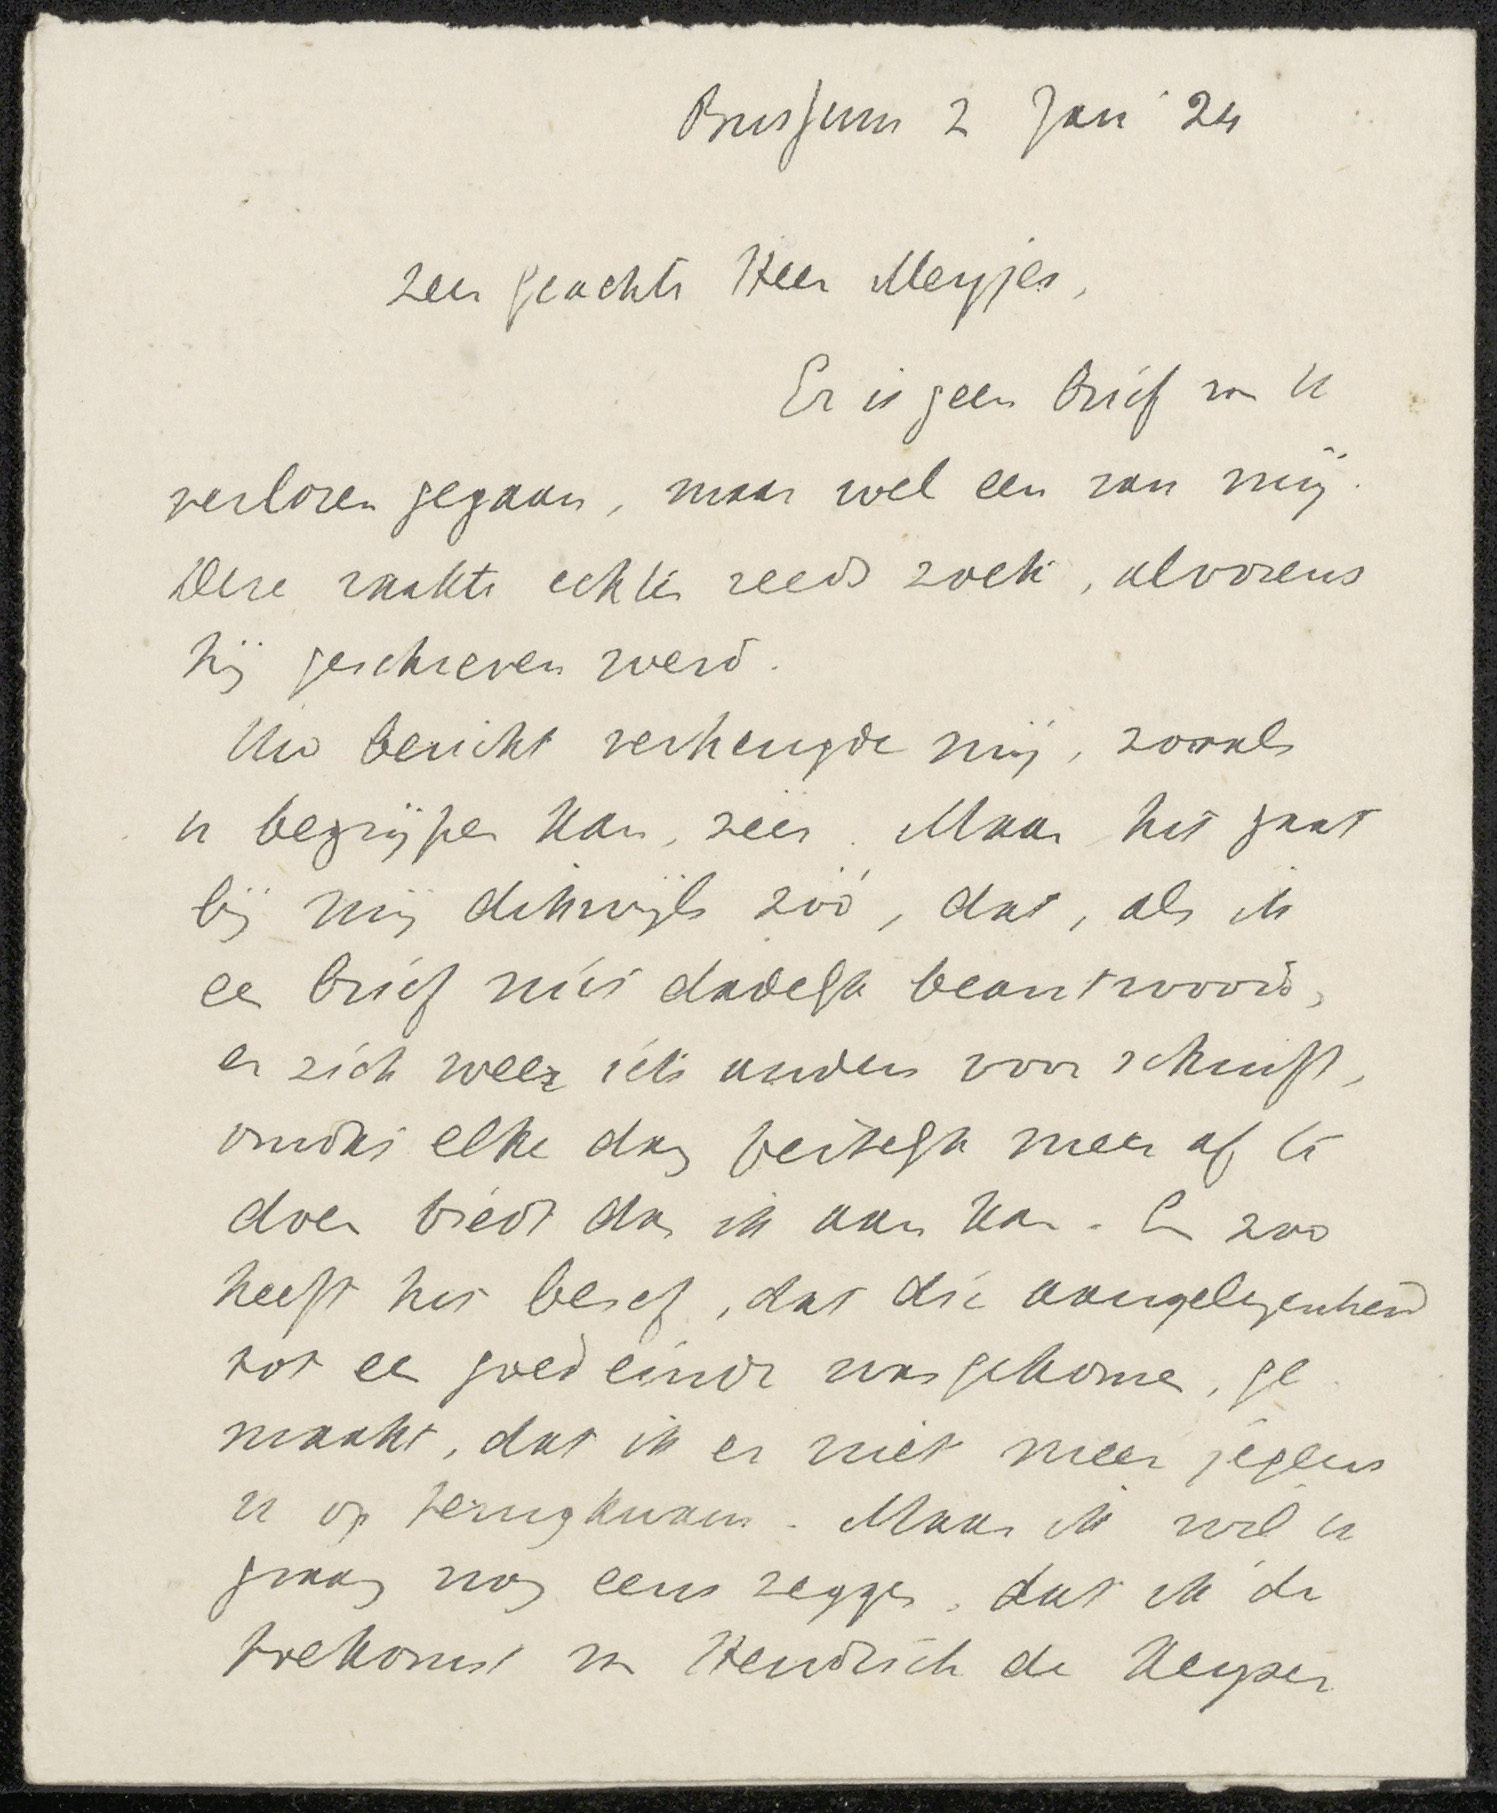 Bussum 2 Jan '24
Zeer geachte Heer Meyjes,
Er is geen brief van U
verloren gegaan, maar wel een van mij.
Deze raakte echter reeds zoek, alvorens
hij geschreven werd.
Uw bericht verheugde mij, zooals
u begrijpen kan, zéér. Maar het gaat
bij mij dikwijls zóó, dat, als ik
een brief niet dadelijk beantwoord,
er zich weer iets anders voor schuift,
omdat elke dag feitelijk meer af te
doen biedt dan ik aan kan. En zoo
heeft het besef, dat die aangelegenheid
tot een goed einde was gekomen, ge
maakt, dat ik er niet meer jegens
u op terugkwam. Maar ik wil u
graag nog eens zeggen, dat ik de
toekomst van Hendrick de Keyser